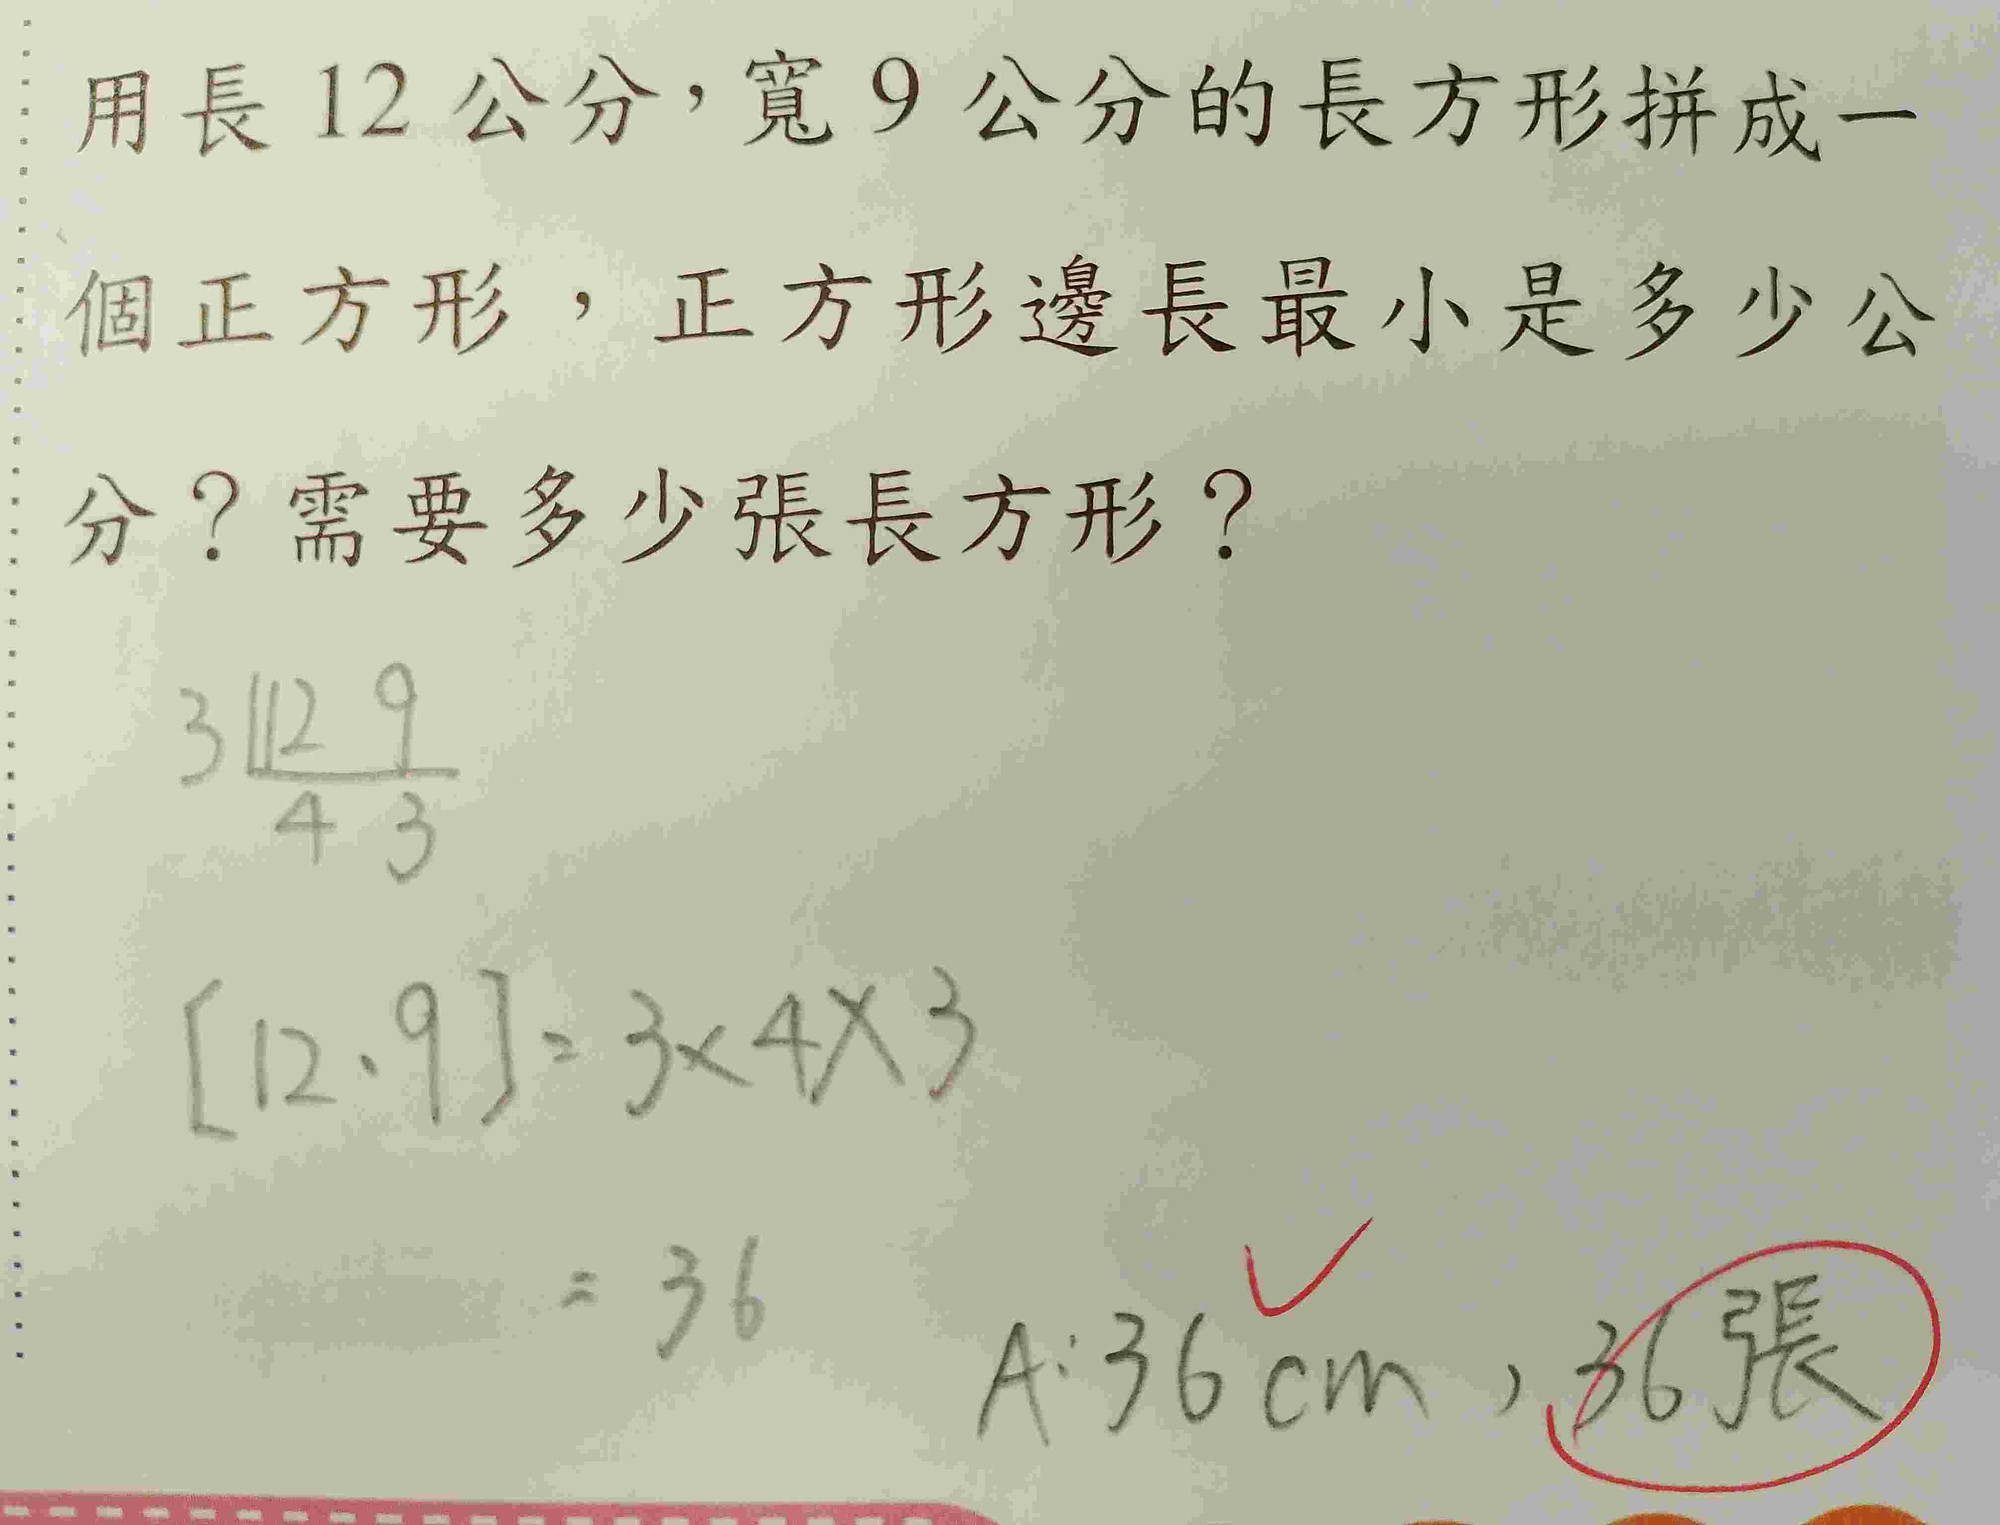 用長 12 公分，寬 9 公分的長方形拼成一
個正方形，正方形邊長最小是多少公
分？需要多少張長方形？
3 12 9
4 3
[12、9]=3×4×3
=36
A:36cm，36張